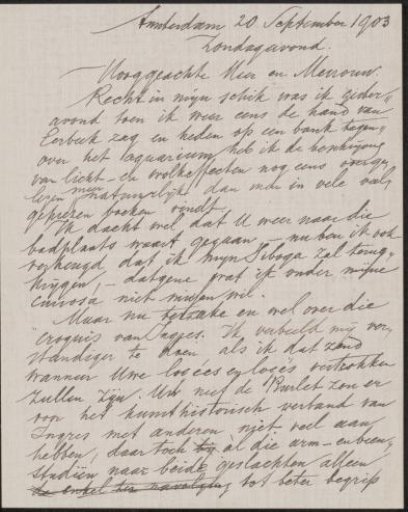 Amsterdam 20 September 1903
Zondagavond.
Hooggeachte Heer en Mevrouw.
Recht in mijn schik was ik gister-
avond toen ik weer eens de hand van
Eerbeek zag en heden op een bank tegen-
over het aquarium heb ik de beschrijving
van licht- en wolkeffecten nog eens overge-
lezen meer natuurlijk dan men in vele vol
geprezen boeken vindt.
Ik dacht wel dat U weer naar die
badplaats waart gegaan - nu ben ik ook
verheugd dat ik mijn Siboga zal terug-
krijgen, - datgene wat ik onder mijne
curiosa niet missen wil.
Maar nu ter zake en wel over die
croquis van Ingres. Ik verbeeld mij ver-
standiger te doen als ik dat zend
wanneer Uwe logées vertrokken
zullen zijn. Uw neef de Burlet zou er
voor het kunsthistorisch verband van
Ingres met anderen niet veel aan
hebben, daar toch al die arm- en been-
studiën naar beide geslachten alleen
tot beter begrip